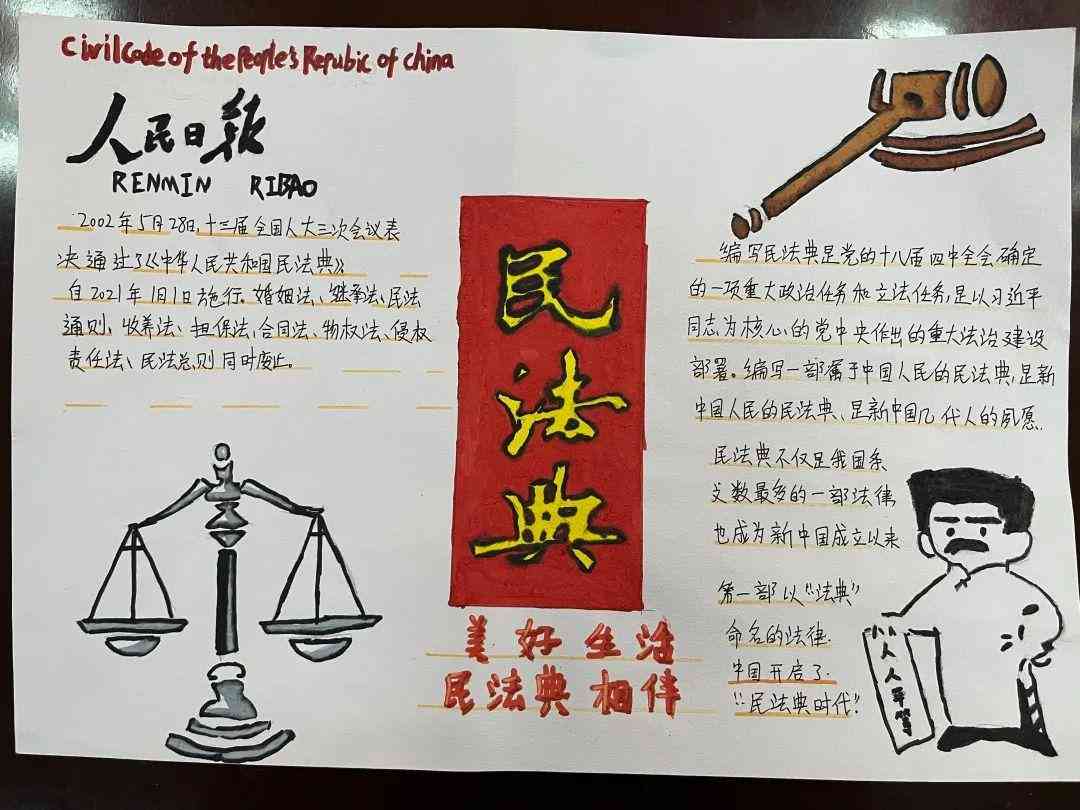 CivilCode of the People's Repubic of china
人民日报
RENMIN RIBAO
2002年5月28日,十三届全国人大三次会议表
决通过了《中华人民共和国民法典》
自2021年1月1日施行。婚姻法、继承法、民法
通则、收养法、担保法、合同法、物权法、侵权
责任法、民法总则同时废止。
民
法
典
美好生活
民法典相伴
编写民法典是党的十八届四中全会确定
的一项重大政治任务和立法任务,是以习近平
同志为核心的党中央作出的重大法治建设
部署。编写一部属于中国人民的民法典,是新
中国人民的民法典、是新中国几代人的夙愿.
民法典不仅是我国条
文数最多的一部法律
也成为新中国成立以来
第一部以“法典”
命名的法律.
中国开启了.
“民法典时代”
人人平等